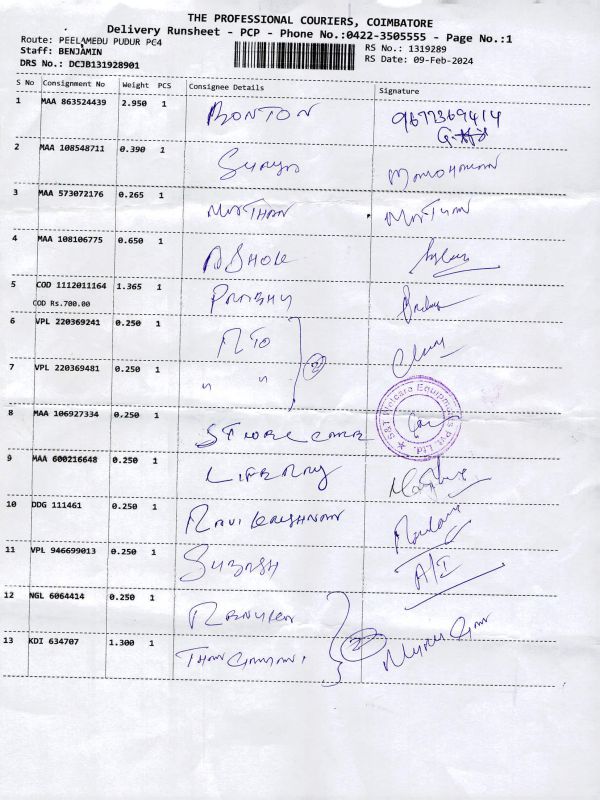 THE PROFESSIONAL COURIERS, COIMBATORE
Delivery Runsheet - PCP - Phone No.:0422-3505555 - Page No.:1
Route: PEELAMEDU PUDUR PC4
RS No.: 1319289
Staff: BENJAMIN
RS Date: 09-Feb-2024
DRS No.: DCJB131928901
S No Consignment No Weight PCS Consignee Details Signature
1 MAA 863524439 2.950 1 BONTON 9677369414
2 MAA 108548711 0.390 1 Surya Manoharan
3 MAA 573072176 0.265 1
4 MAA 108106775 0.650 1 ASHOK
5 COD 1112011164 1.365 1 PRABHU
COD Rs.700.00
6 VPL 220369241 0.250 1 RTO
2
7 VPL 220369481 0.250 1 " "
S&T Welcare Equipments Pvt. Ltd.
8 MAA 106927334 0.250 1
9 MAA 600216648 0.250 1 LIBRARY
10 DDG 111461 0.250 1 RAVI KRISHNAN
11 VPL 946699013 0.250 1 SUBASH A/I
12 NGL 6064414 0.250 1
2
13 KDI 634707 1.300 1